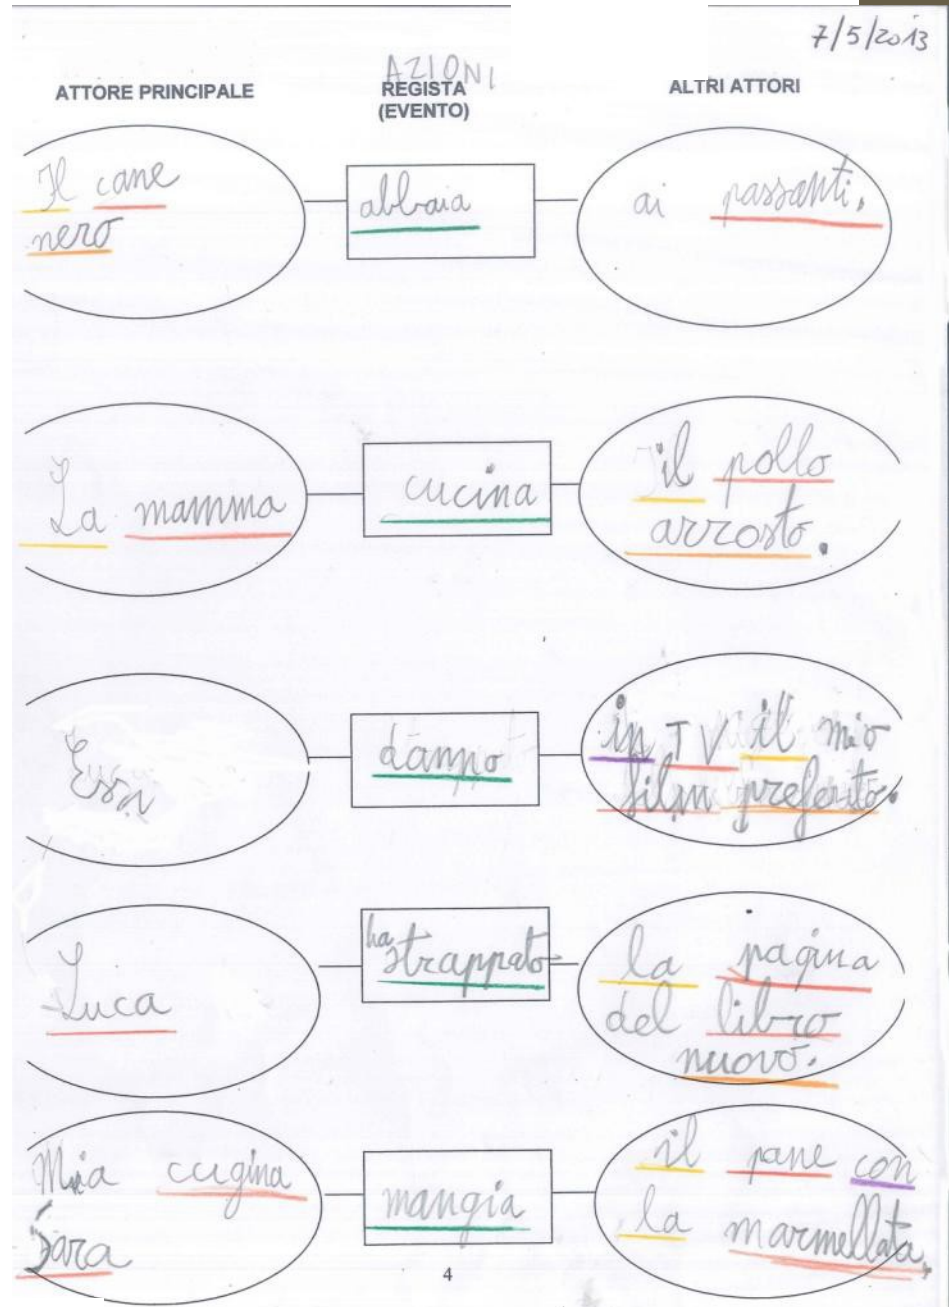 7/5/2013
AZIONI
ATTORE PRINCIPALE
REGISTA
(EVENTO)
ALTRI ATTORI
Il cane
nero
abbaia
ai passanti.
La mamma
cucina
il pollo
arrosto.
Essi
danno
in TV il mio
film preferito.
Luca
ha strappato
la pagina
del libro
nuovo.
Mia cugina
Sara
mangia
il pane con
la marmellata.
4